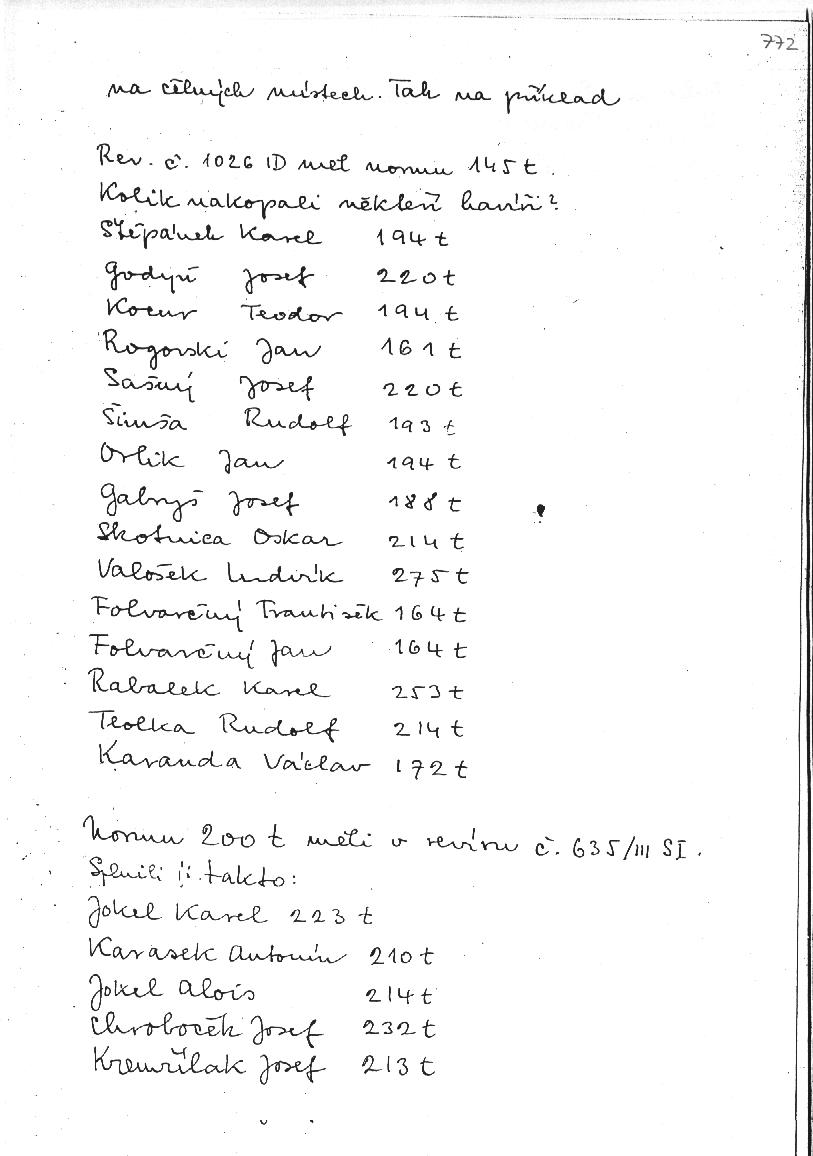 772
na čelných místech. Tak na příklad
Rev. č. 1026 ID měl normu 145 t.
Kolik nakopali někteří havíři?
Štěpánek Karel 194 t
Godýň Josef 220 t
Kocur Teodor 194 t
Rogorski Jan 161 t
Sašný Josef 220 t
Šimša Rudolf 193 t
Orlik Jan 194 t
Gabryš Josef 188 t
Skotnica Oskar 214 t
Valošek Ludvík 275 t
Folvarčný František 164 t
Folvarčný Jan 164 t
Rabalek Karel 253 t
Teolka Rudolf 214 t
Karanda Václav 172 t
Normu 200 t měli v revíru č. 635/III SI.
Splnili ji takto:
Jokel Karel 223 t
Karasek Antonín 210 t
Jokel Alois 214 t
Chroboček Josef 232 t
Josef 213 t